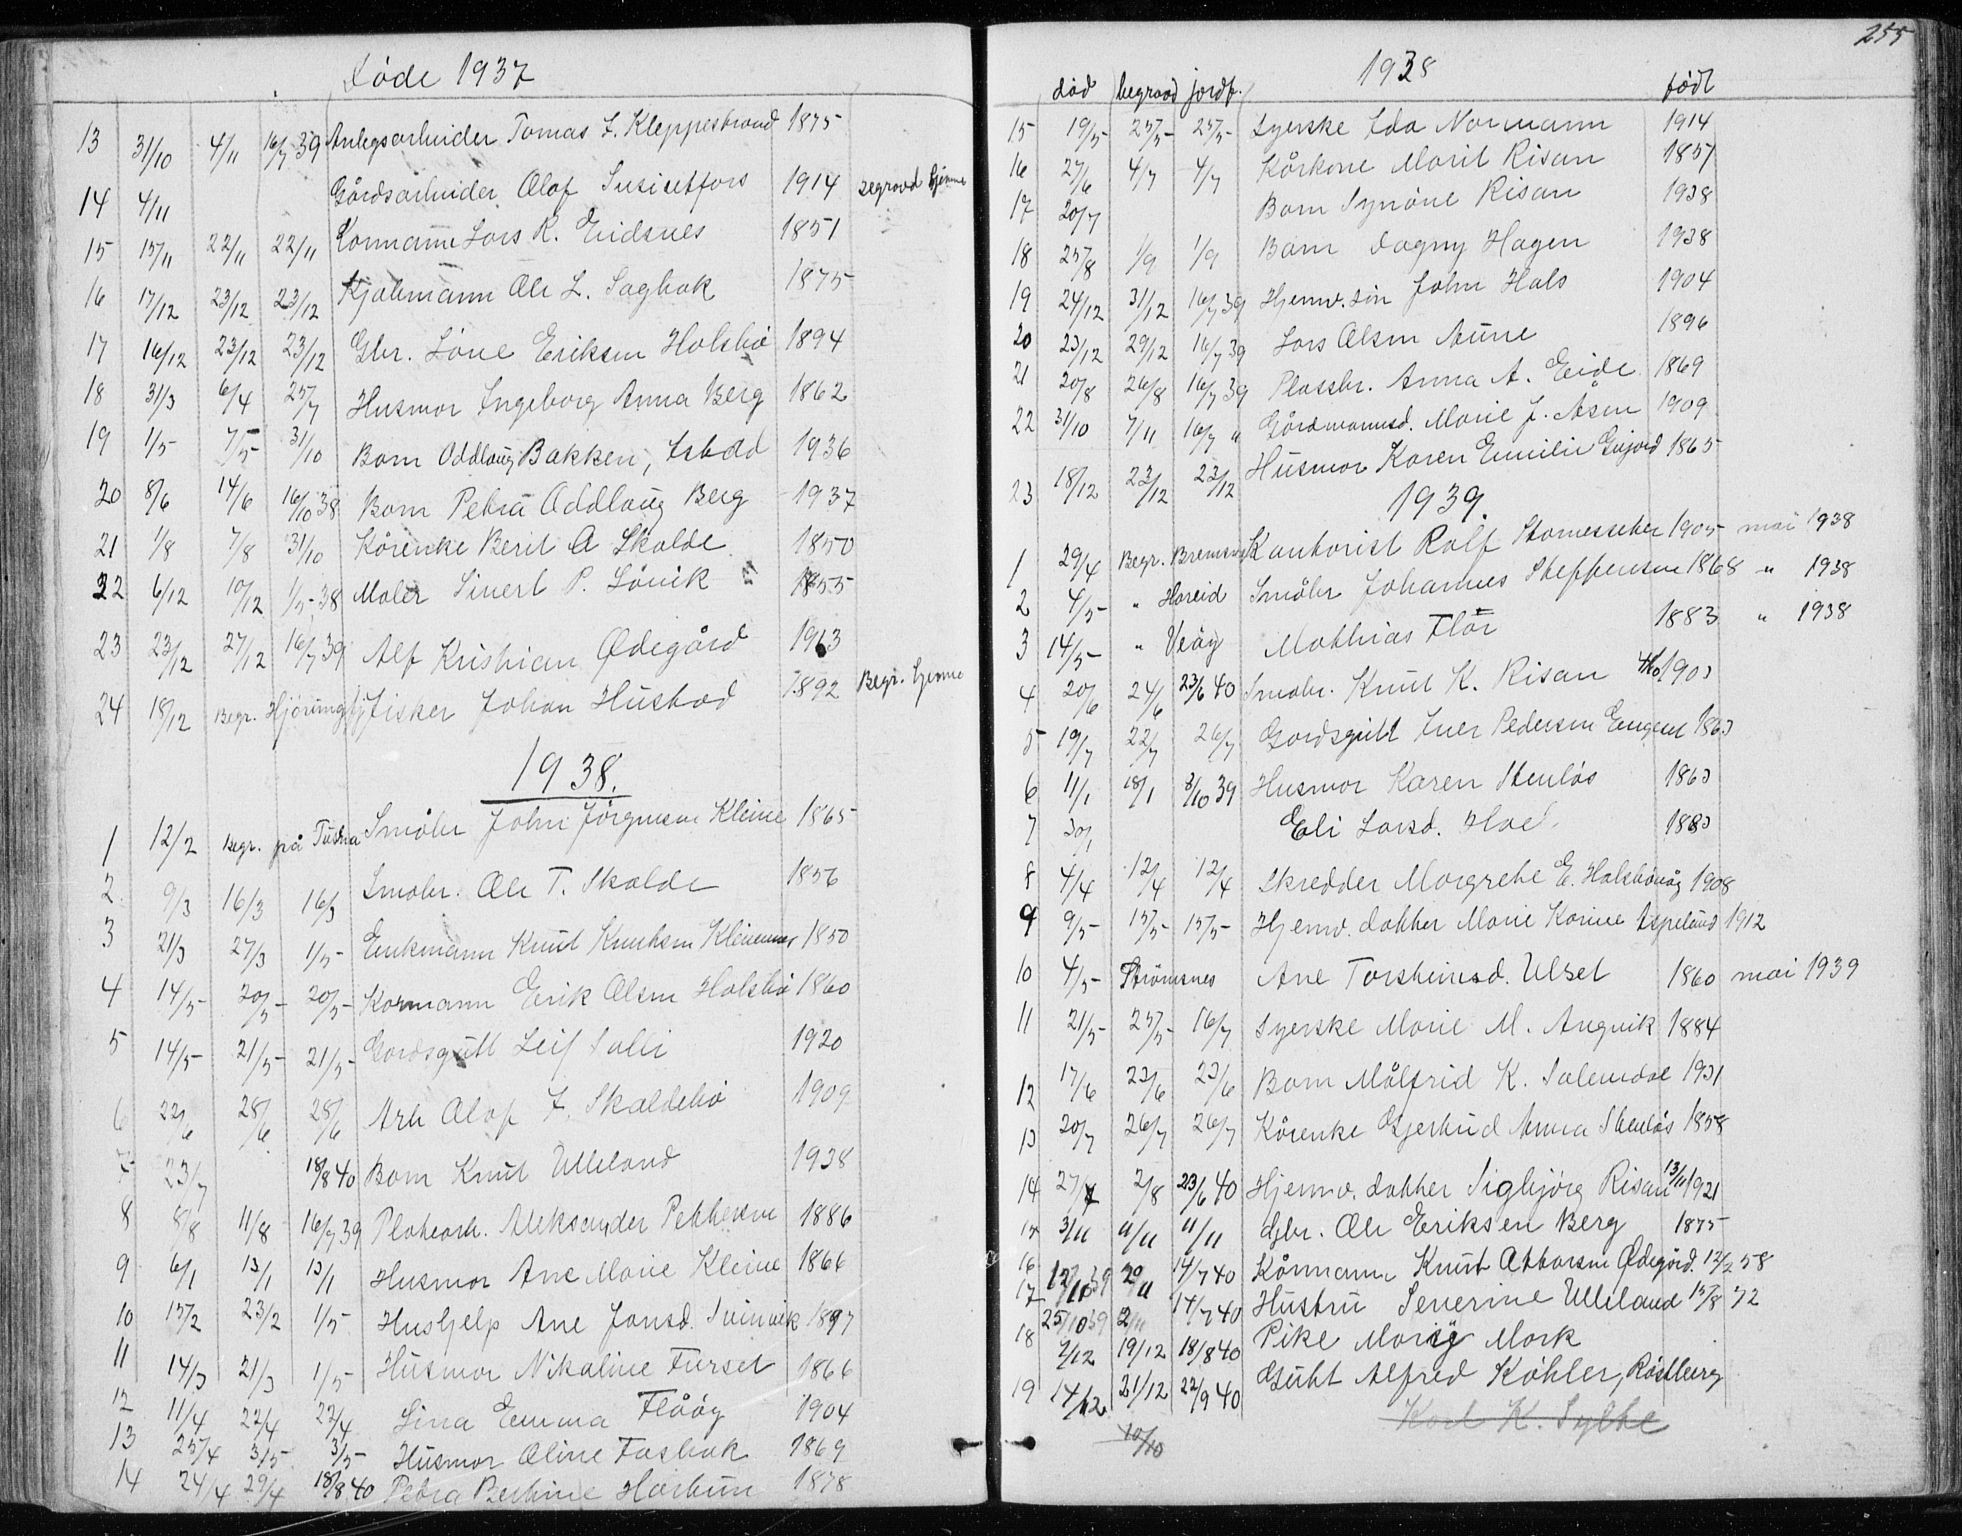 Døde 1937
13 31/10 4/11 16/7 39 Anlegsarbeider Tomas J. Kleppestrand 1875
14 4/11 Gårdsarbeider Olaf 1914 Begravd hjemme
15 15/11 22/11 22/11 Lars K. Eidsnes 1851
16 17/12 23/12 23/12 Ole L. Sagbak 1875
17 16/12 23/12 23/12 Gbr. Eriksen Holsbø 1894
18 31/3 6/4 25/7 Husmor Ingeborg Anna Berg 1862
19 1/5 7/5 31/10 Barn Oddlaug Bakken, 1936
20 8/6 14/6 16/10 38 Barn Petra Oddlaug Berg 1937
21 1/8 7/8 31/10 Kårenke Berit A Skalde 1850
22 6/12 10/12 1/5-38 Maler Sivert P. 1855
23 23/12 27/12 16/7 39 Alf Kristian Ødegård 1913
24 18/12 Begr. Fisker Johan Hustad 1892 Begr. hjemme
1938.
1 12/2 Begr. på Tustna Småbr John Jørgensen Kleive 1865
2 9/3 16/3 16/3 Småbr. Ole T. Skalde 1856
3 21/3 27/3 1/5- Enkemann Knut Knutsen 1850
4 14/5- 20/5- 20/5- Kårmann Erik Olsen Holsbø 1860
5 14/5- 21/5- 21/5- Gårdsgutt Leif 1920
6 22/6 28/6 28/6 Arb Olaf J. Skaldebø 1909
7 23/7 18/8 40 Barn Knut Ulleland 1938
8 8/8 11/8 16/7 39 Aleksander Pettersen 1886
9 6/1 13/1 13/1 Husmor Ane Marie Kleive 1866
10 15/2 23/2 1/5- Hushjelp Ane Jonsd. Svinvik 1897
11 14/3 21/3 1/5- Husmor Nikoline Furset 1866
12 11/4 22/4 22/4 Emma Flåøy 1904
13 25/4 3/5 3/5 Husmor Oline 1869
14 24/4 29/4 18/8 40 Petra 1878
255
1938
død begravd jordf. født
15 19/5- 25/5- 25/5- Syerske Ida Normann 1914
16 27/6 4/7 4/7 Kårkone Marit Risan 1857
17 20/7 Barn Synøve Risan 1938
18 25/8 1/9 1/9 Barn Dagny Hagen 1938
19 24/12 31/12 16/7 39 Hjemv. søn John Hals 1904
20 23/12 29/12 16/7 39 Lars Olsen Aune 1896
21 20/8 26/8 16/7 39 Plassbr. Anna A. Eide 1869
22 31/10 7/11 16/7 " Gårdmannsd. Marie J. Åsen 1909
23 18/12 23/12 23/12 Husmor Karen Emilie Gujord 1865
1939.
1 29/4 Begr. Bremsnes Kontorist Rolf 1905 mai 1938
2 4/5- " Hareid Småbr Johannes Steffensen 1868 " 1938
3 14/5- " Veøy Mathias Flor 1883 " 1938
4 20/6 24/6 23/6 40 Småbr. Knut K. Risan 1903
5 19/7 22/7 26/7 Gårdsgutt Iver Pedersen 1863
6 11/1 18/1 8/10 39 Husmor Karen Stenløs 1863
7 30/1 Eli Larsd. 1883
8 4/4 12/4 12/4 Skredder Margrethe E. Holsbøvåg 1908
9 9/5- 15/5- 15/5- Hjemv. datter Marie Korine Aspelund 1912
10 4/5- Strømsnes Ane Torsteinsd. Ulset 1860 mai 1939
11 21/5- 25/5- 16/7 Syerske Marie M. Angvik 1884
12 17/6 23/6 23/6 Barn Målfrid K. Solemdal 1931
13 20/7 26/7 26/7 Kårenke Gjertrud Anna Stenløs 1858
14 27/7 2/8 23/6 40 Hjemv. datter Sigbjørg Risan 13/11 1921
15 3/11 11/11 11/11 Gbr. Ole Eriksen Berg 1875
16 14/7 40 Kårmann Knut Ødegård. 12/2 58
17 25/10 39 2/11 14/7 40 Hustru Severine Ulleland 15/8 72
18 2/12 19/12 18/8 40 Pike Mork
19 14/12 21/12 22/9 40 Gutt Alfred Köhler, Röstberg
10/10 Karl K. Sylte